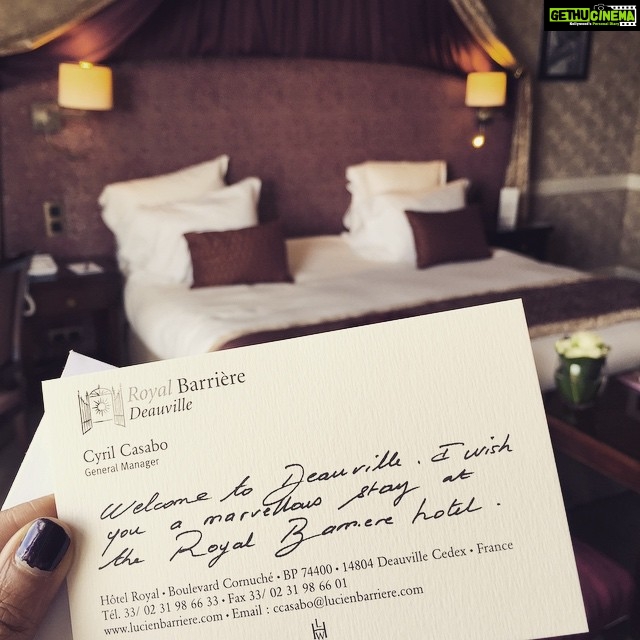 GETHU CINEMA
Kollywood's Personal Diary
Royal Barrière
Deauville
Cyril Casabo
General Manager
Welcome to Deauville. I wish
you a marvellous stay at
the Royal Barriere hotel.
Hôtel Royal • Boulevard Cornuché • BP 74400 • 14804 Deauville Cedex • France
Tél. 33/ 02 31 98 66 33 • Fax 33/ 02 31 98 66 01
www.lucienbarriere.com • Email : ccasabo@lucienbarriere.com